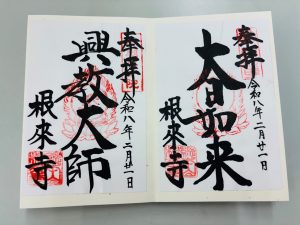 奉拝
令和八年二月廿一日
大日如来
根來寺
奉拝
令和八年二月廿一日
興教大師
根來寺